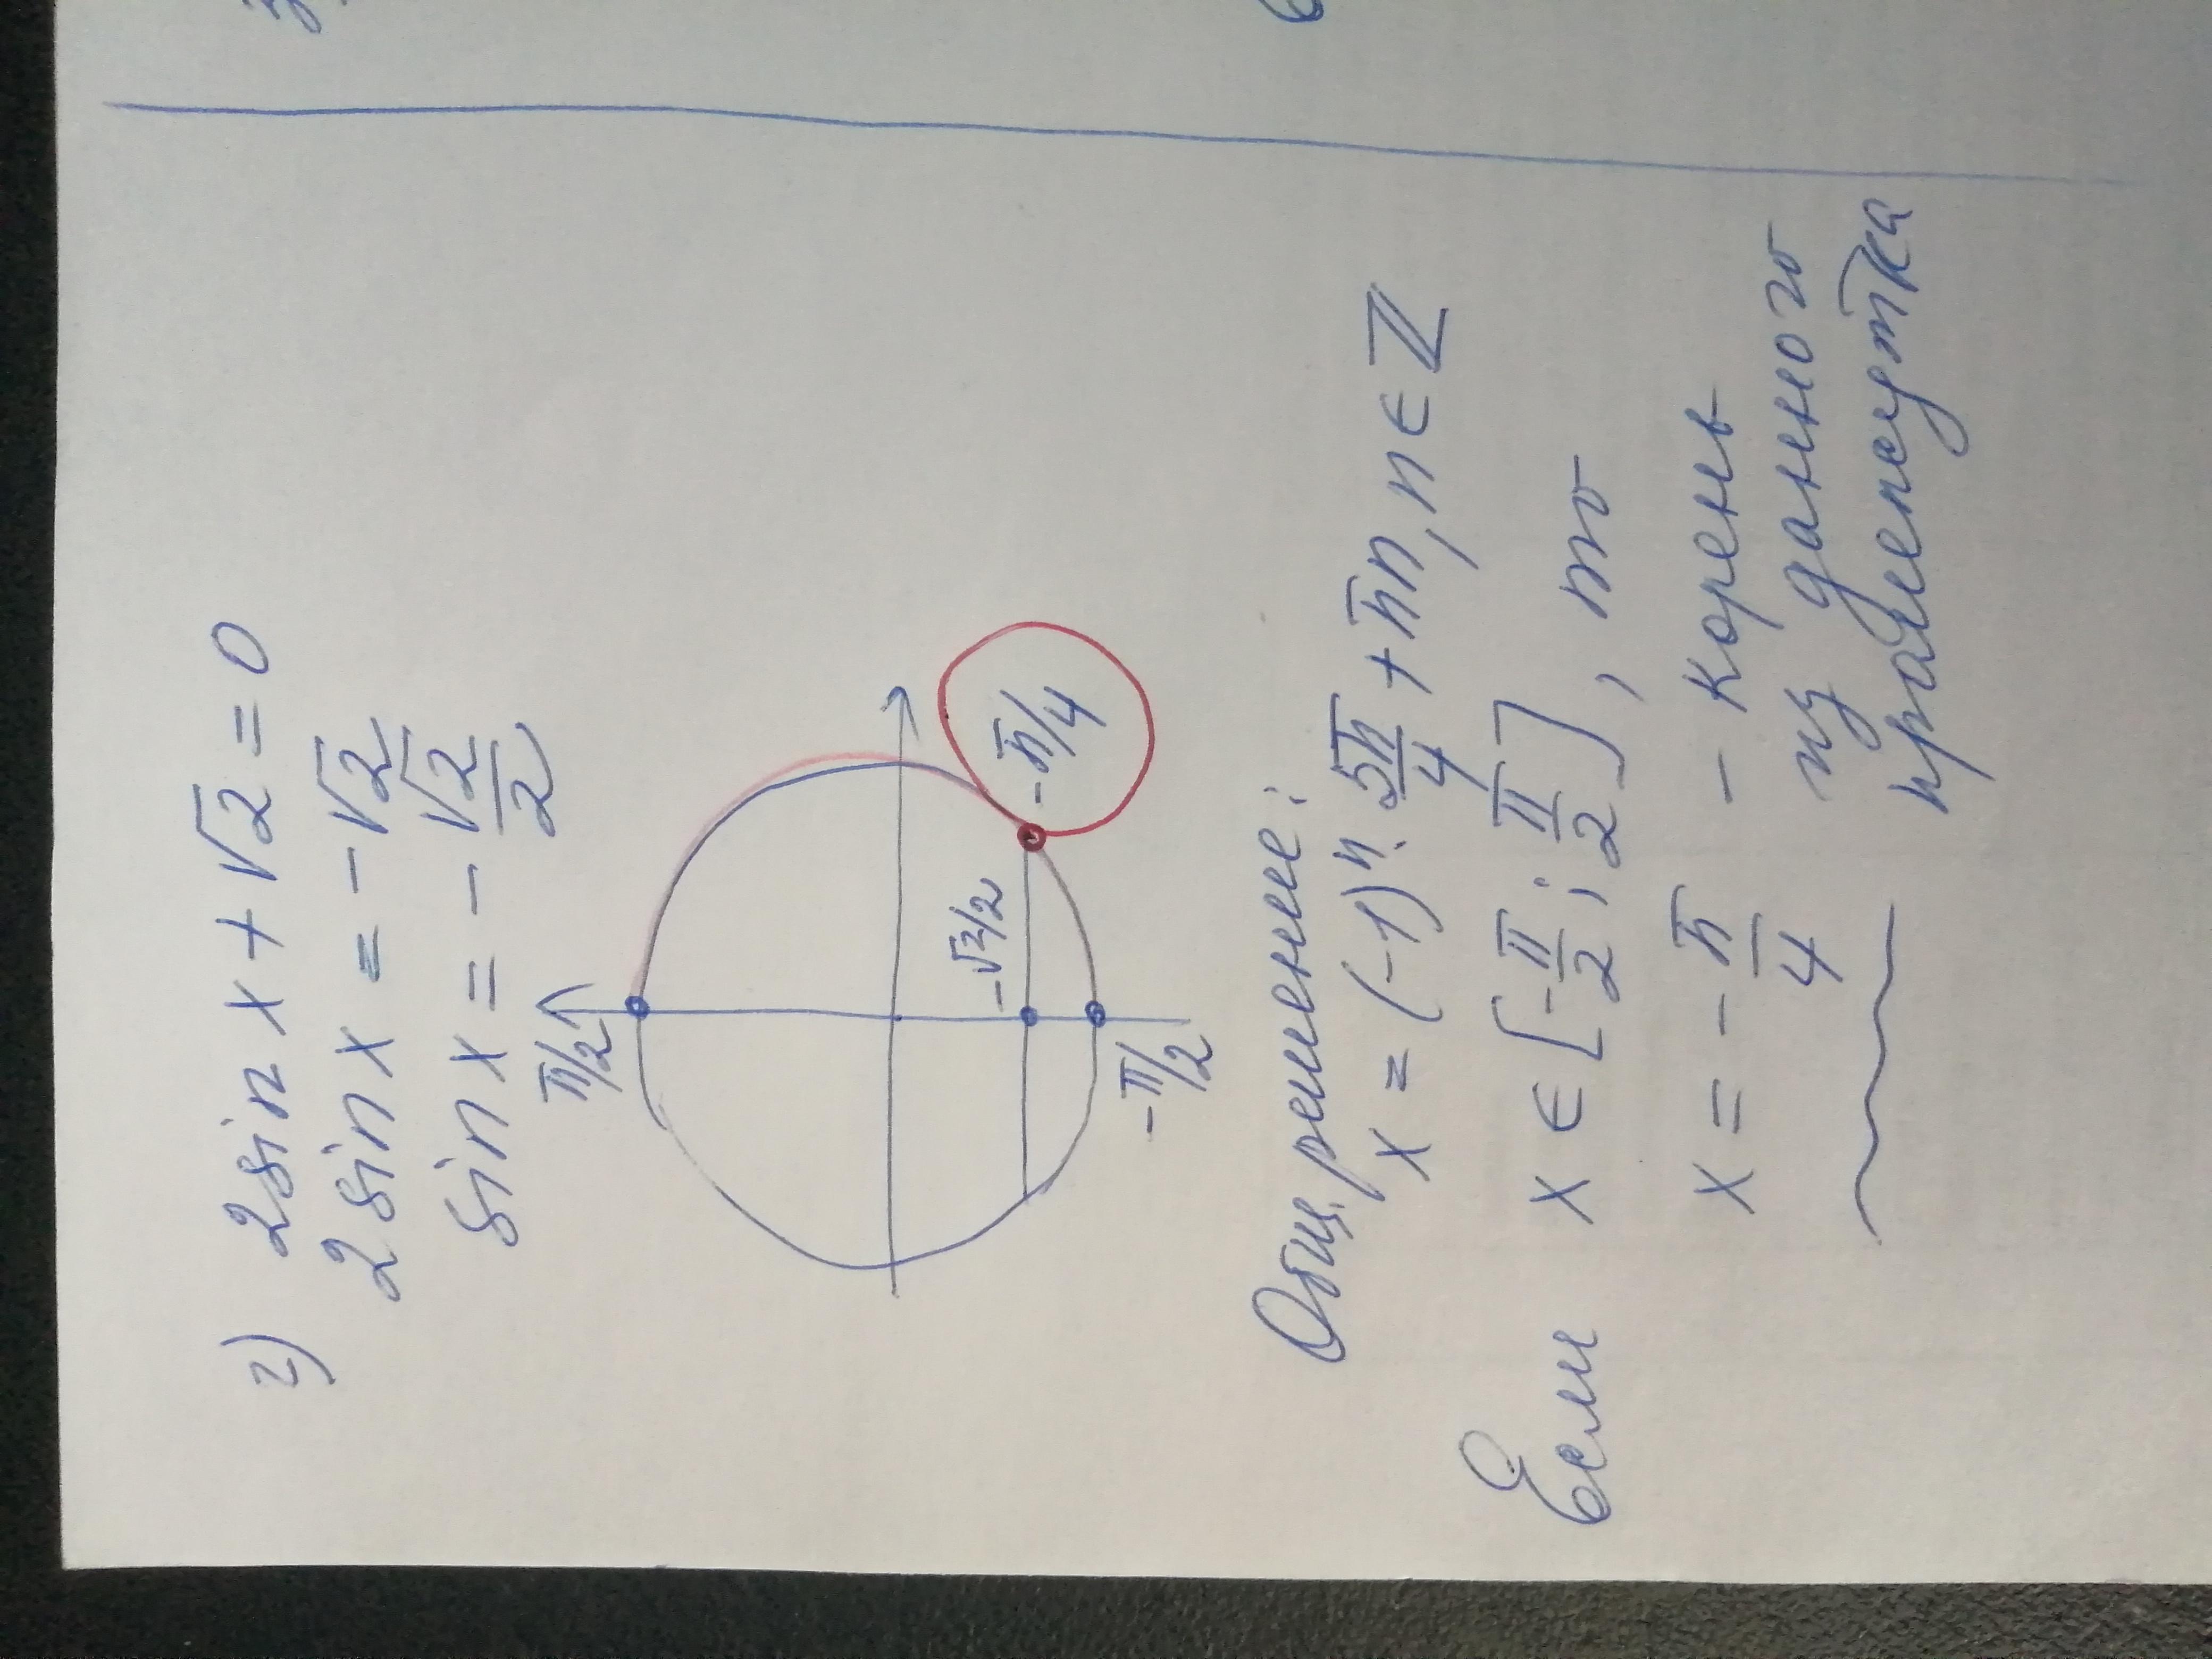 2) 2sin x + √2 = 0
2 sin x = -√2
sin x = - √2/2
π/2
-√2/2
-π/4
-π/2
Общ. решение:
x = (-1)ⁿ · 5π/4 + πn, n ∈ ℤ
Если x ∈ [-π/2; π/2], то
x = - π/4 - корень
из данного
промежутка